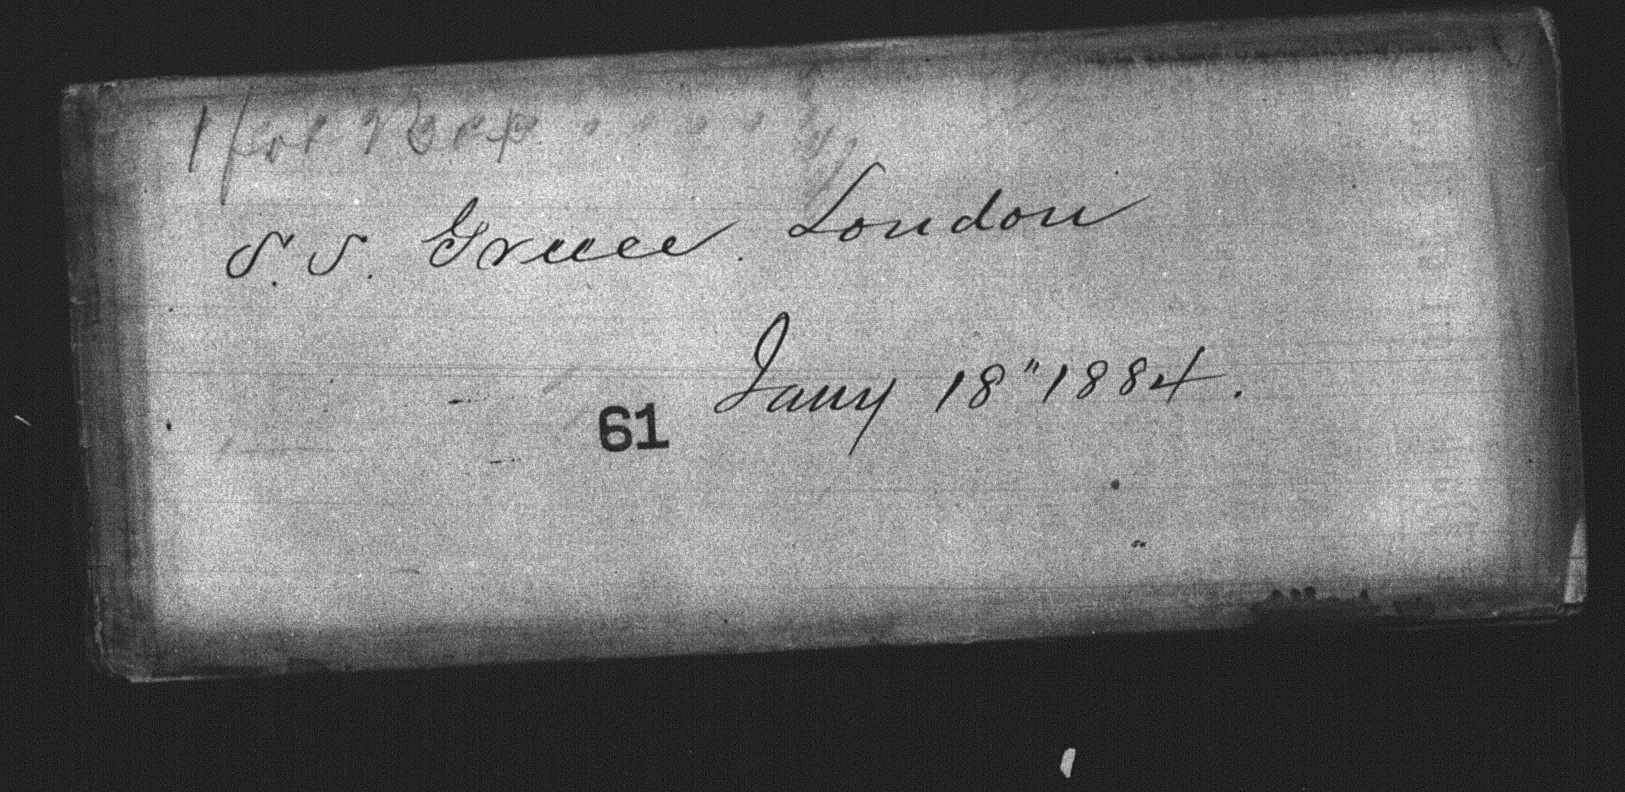 S. S. Greece. London
Jany 18" 1884.
61